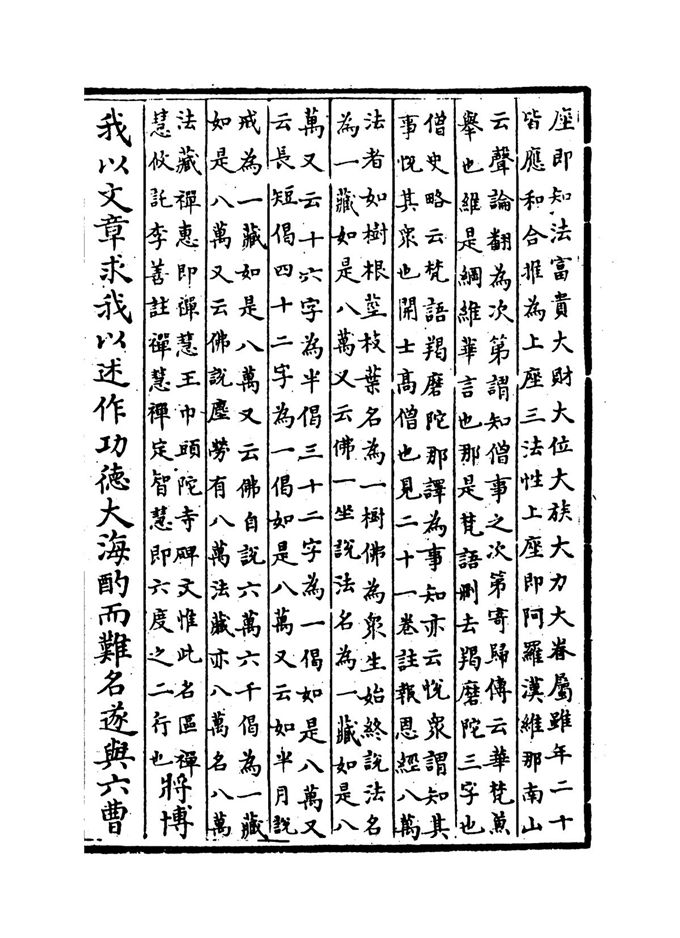 座即知法富貴大財大位大族大力大眷屬雖年二十
皆應和合推為上座三法性上座即阿羅漢維那南山
云聲論翻為次第謂知僧事之次第寄歸傳云華梵兼
舉也維是綱維華言也那是梵語刪去羯磨陀三字也
僧史略云梵語羯磨陀那譯為事知亦云悅衆謂知其
事悅其衆也開士高僧也見二十一卷註報恩經八萬
法者如樹根莖枝葉名為一樹佛為衆生始終說法名
為一藏如是八萬又云佛一坐說法名為一藏如是八
萬又云十六字為半偈三十二字為一偈如是八萬又
云長短偈四十二字為一偈如是八萬又云如半月說
戒為一藏如是八萬又云佛自說六萬六千偈為一藏
如是八萬又云佛說塵勞有八萬法藏亦八萬名八萬
法藏禪惠即禪慧王巾頭陀寺碑文惟此名區禪
慧攸託李善註禪慧禪定智慧即六度之二行也
將博
我以文章求我以述作功德大海酌而難名遂與六曹